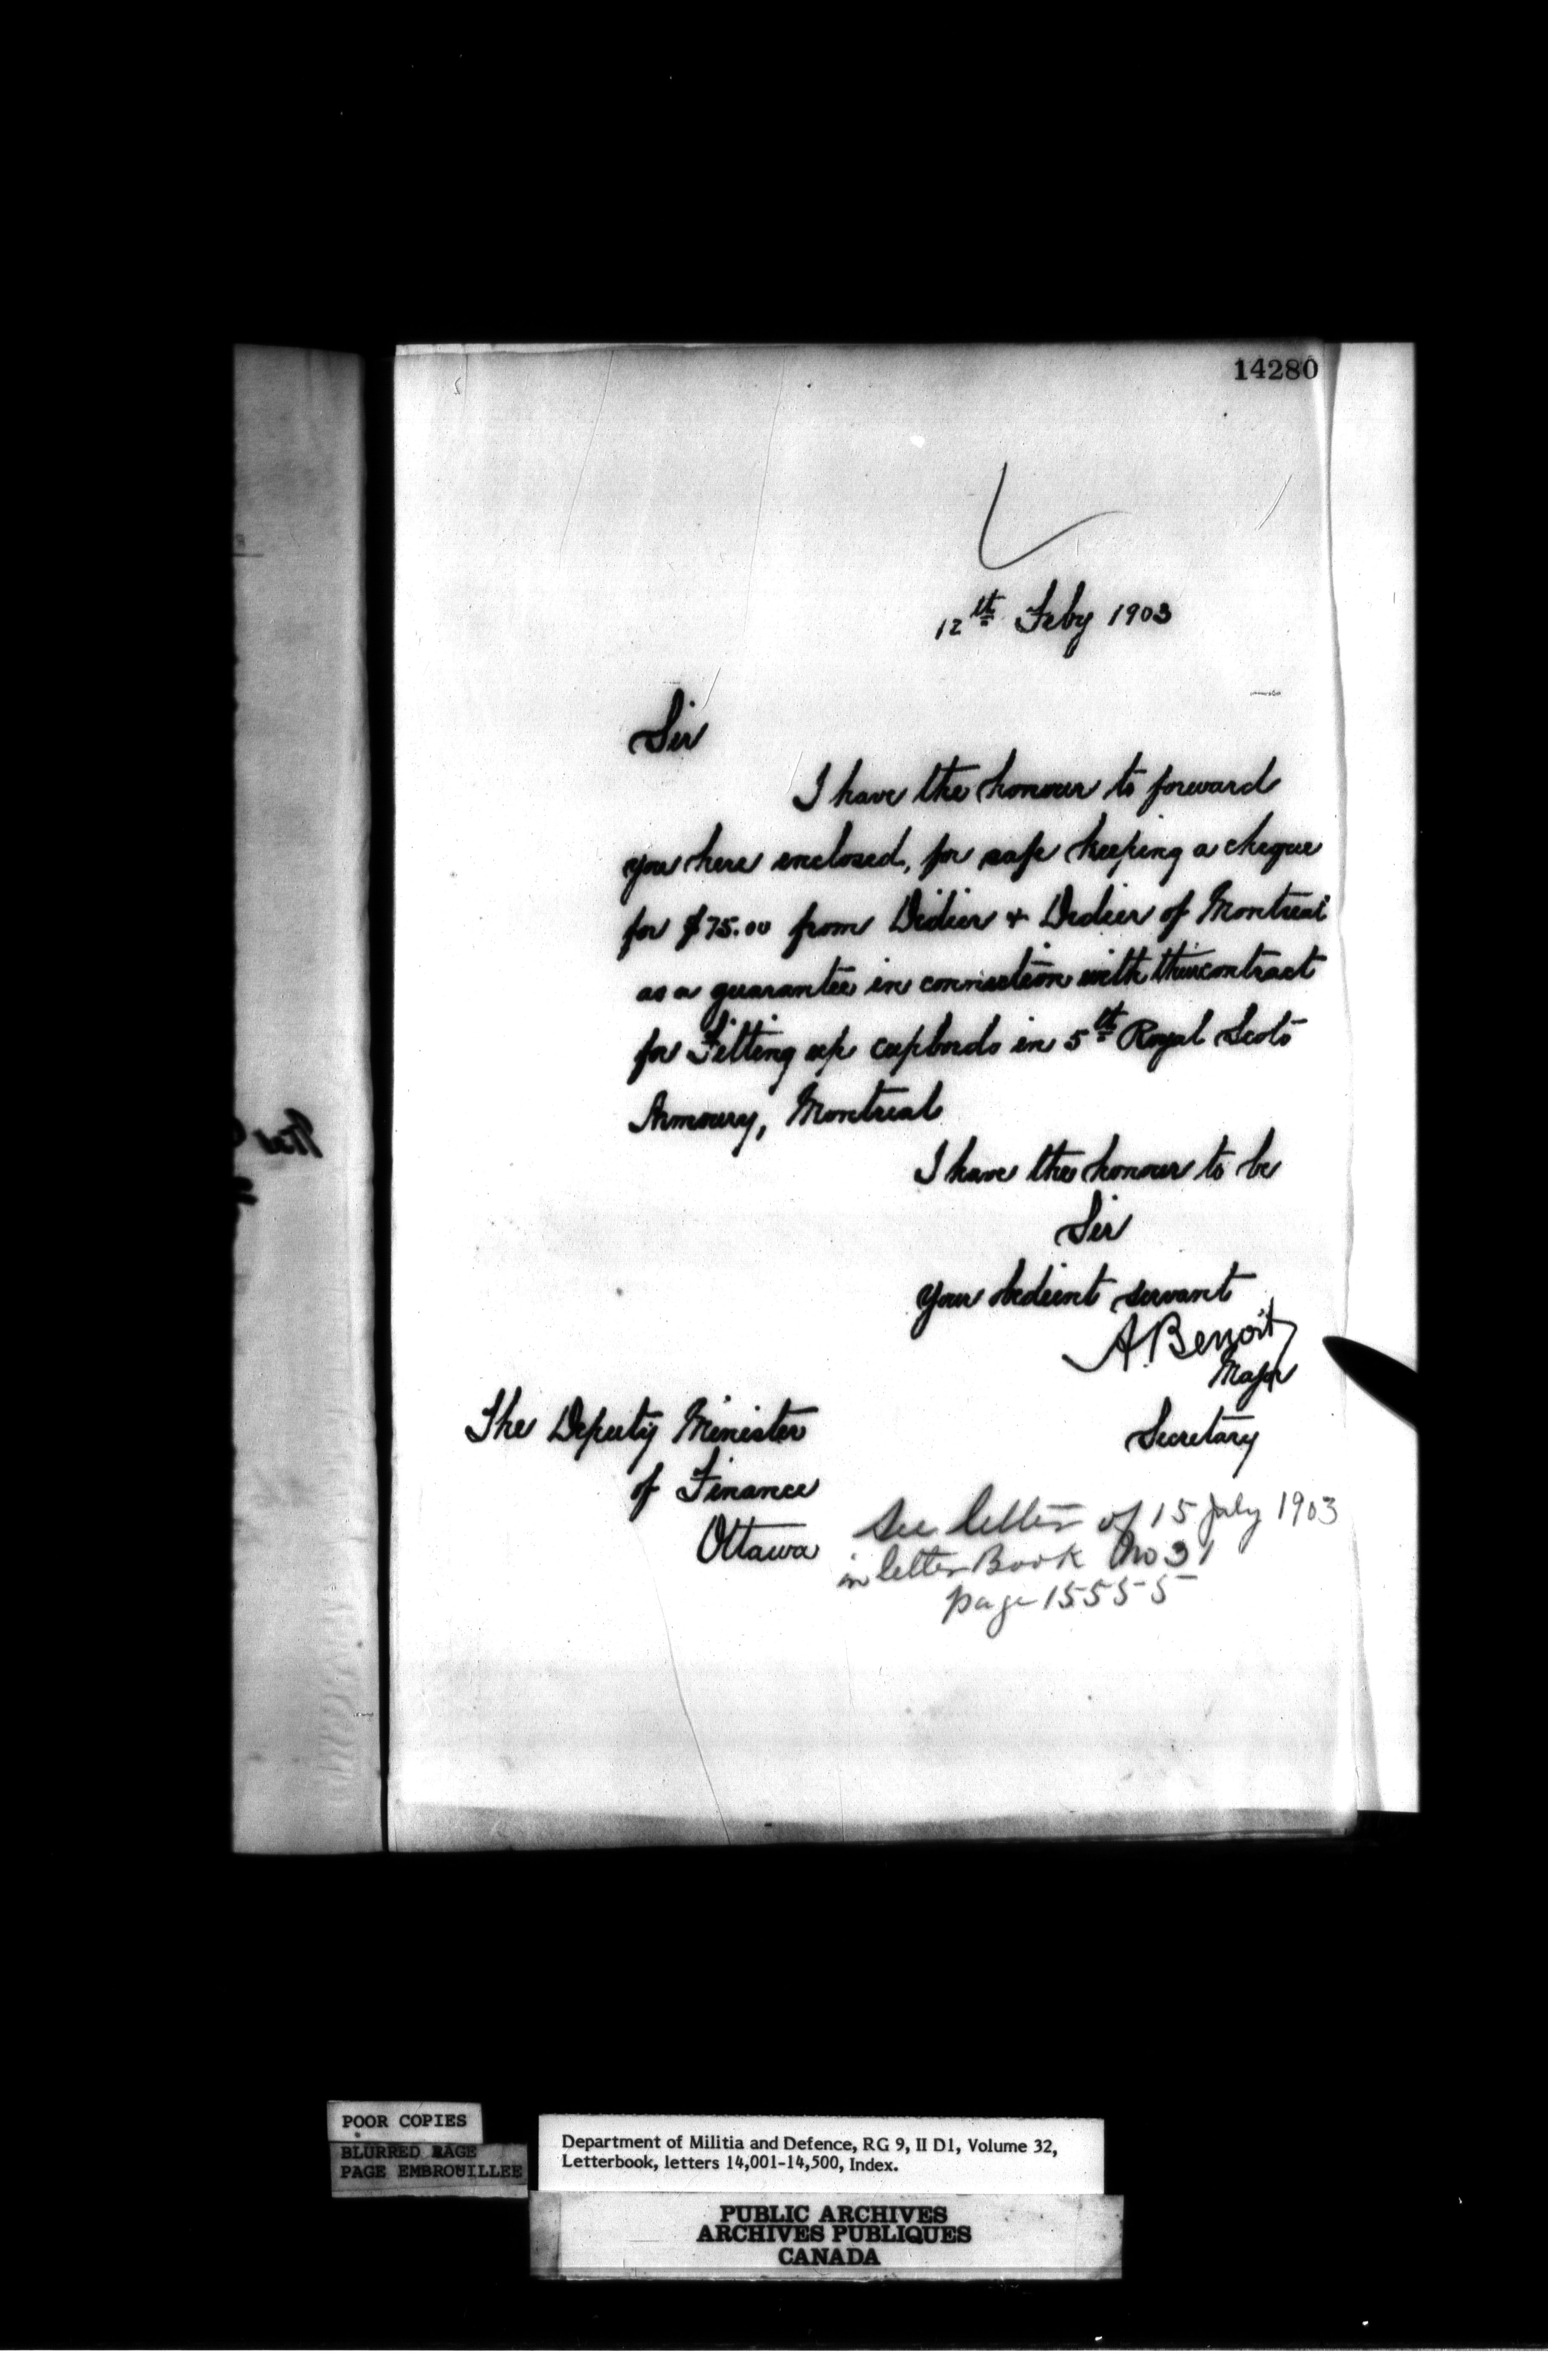 14280
12th Feby 1903
Sir
I have the honour to forward
you here enclosed, for safe keeping a cheque
for $75.00 from Didier + Didier of Montreal
as a guarantee in connection with their contract
for Fitting up cupbords in 5th Royal Scots
Armoury, Montreal
I have the honour to be
Sir
Your obedient servant
A. Benoit
Major
Secretary
The Deputy Minister
of Finance
Ottawa
See letter of 15 July 1903
in letter Book No 31
page 15555
POOR COPIES
BLURRED PAGE
PAGE EMBROUILLEE
Department of Militia and Defence, RG 9, II D1, Volume 32,
Letterbook, letters 14,001-14,500, Index.
PUBLIC ARCHIVES
ARCHIVES PUBLIQUES
CANADA